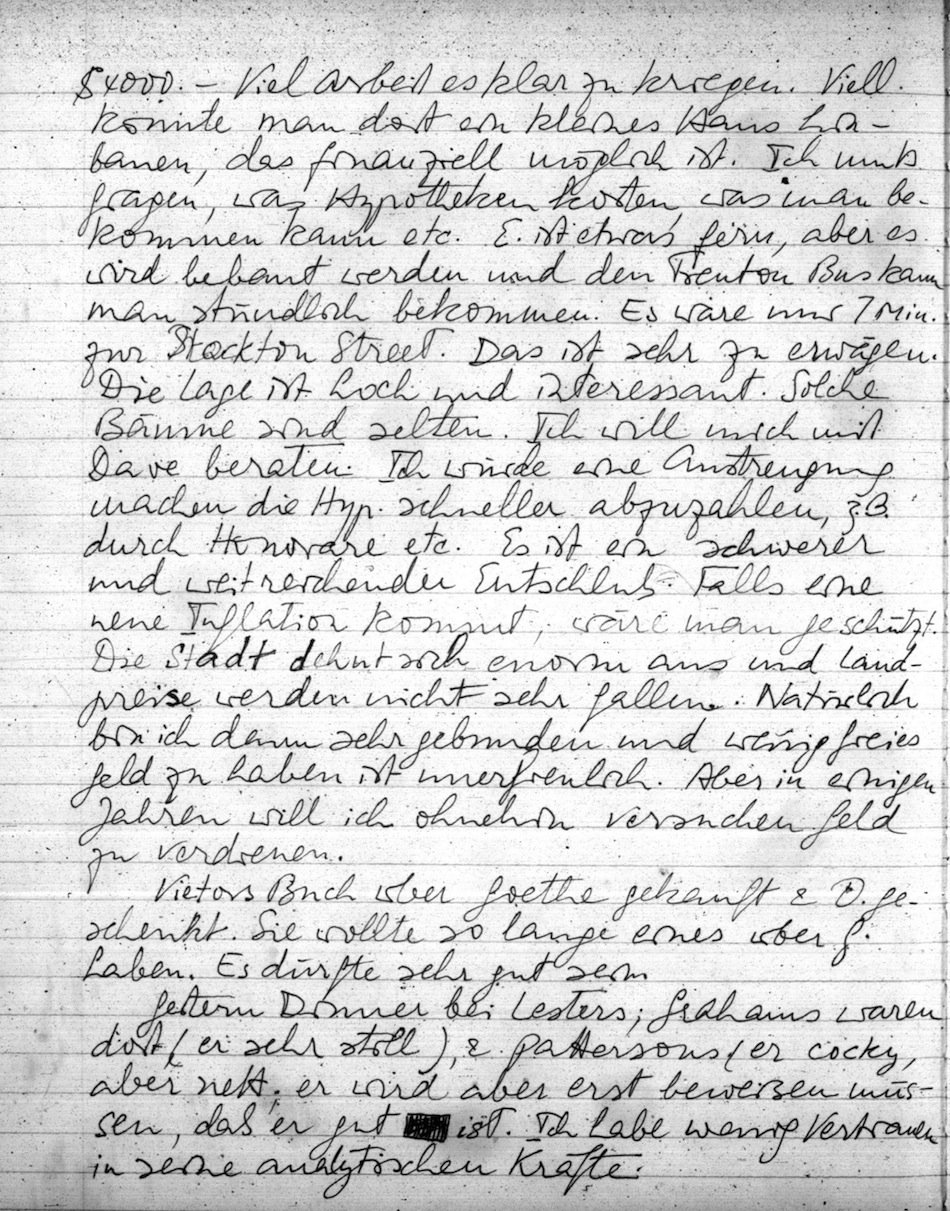 $4000. – Viel Arbeit es klar zu kriegen. Viell.
könnte man dort ein kleines Haus hin-
bauen, das finanziell möglich ist. Ich muß
fragen, was Hypotheken kosten, was man be-
kommen kann etc. E. ist etwas fern, aber es
wird bebaut werden und den Trenton Bus kann
man stündlich bekommen. Es wäre nur 7 Min.
zur Stockton Street. Das ist sehr zu erwägen.
Die Lage ist hoch und interessant. Solche
Bäume sind selten. Ich will mich mit
Dave beraten. Ich würde eine Anstrengung
machen die Hyp. schneller abzuzahlen, z.B.
durch Honorare etc. Es ist ein schwerer
und weitreichender Entschluß. Falls eine
neue Inflation kommt, wäre man geschützt.
Die Stadt dehnt sich enorm aus und Land-
preise werden nicht sehr fallen. Natürlich
bin ich dann sehr gebunden und wenig freies
Geld zu haben ist unerfreulich. Aber in einigen
Jahren will ich ohnehin versuchen Geld
zu verdienen.
Vietors Buch über Goethe gekauft & D. ge-
schenkt. Sie wollte so lange eines über G.
haben. Es dürfte sehr gut sein
Gestern Dinner bei Lesters; Grahams waren
dort (er sehr still), & Pattersons (er cocky,
aber nett; er wird aber erst beweisen müs-
sen, daß er gut ist. Ich habe wenig Vertrauen
in seine analytischen Kräfte.